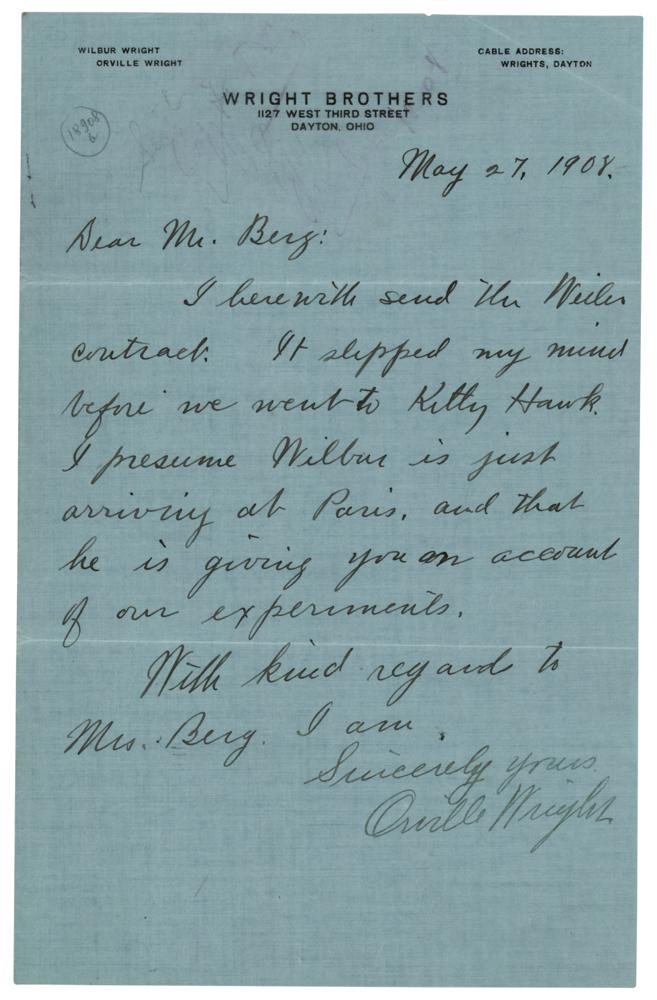 WILBUR WRIGHT
ORVILLE WRIGHT
CABLE ADDRESS:
WRIGHTS, DAYTON
WRIGHT BROTHERS
1127 WEST THIRD STREET
DAYTON, OHIO
18908
6
May 27, 1908.
Dear Mr. Berg:
I herewith send the Weiler
contract. It slipped my mind
before we went to Kitty Hawk.
I presume Wilbur is just
arriving at Paris, and that
he is giving you an account
of our experiments.
With kind regard to
Mrs. Berg. I am,
Sincerely yours.
Orville Wright